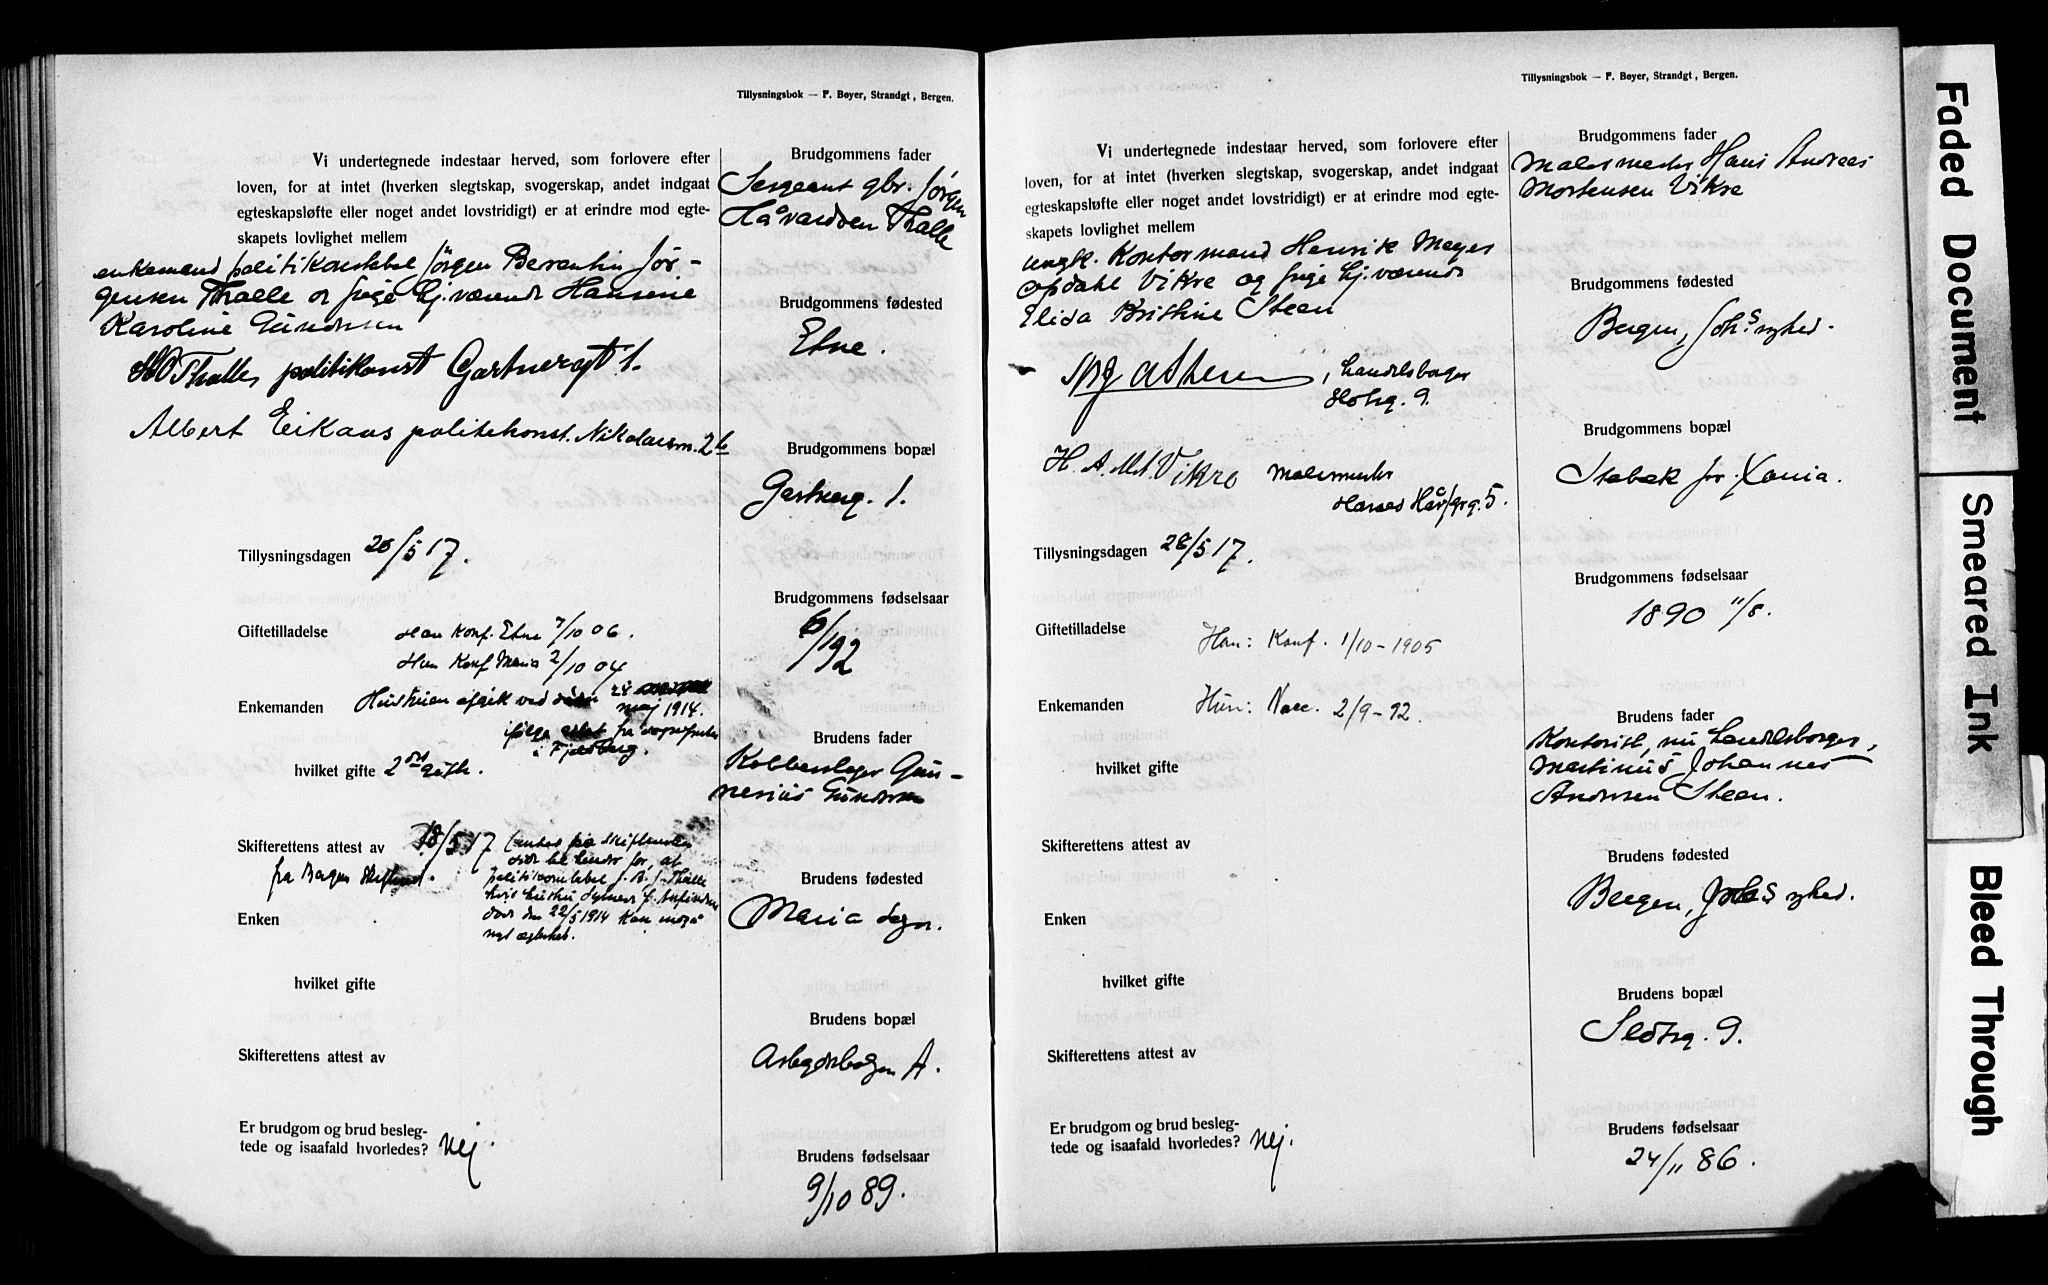 Tillysningsbok — F. Beyer, Strandgt, Bergen.
Vi undertegnede indestaar herved, som forlovere efter
loven, for at intet (hverken slegtskap, svogerskap, andet indgaat
egteskapsløfte eller noget andet lovstridigt) er at erindre mod egte-
skapets lovlighet mellem
enkemand politikonstabel Jørgen Berentin Jør-
gensen Thalle og frøge hj.værende Hansine
Karoline Gundersen
Thalle, politikonst Gartnergt 1.
Albert Eikaas politikonst. Nikolaism. 2 b
Tillysningsdagen 28/5 17.
Giftetilladelse Han konf. Etne 7/10 06.
Hun konf Maria 2/10 04
Enkemanden Hustruen afgik ved døden 24
maj 1914.
ifølge attest fra sognepresten
i Fjelberg.
hvilket gifte 2det gifte.
Skifterettens attest av 18/5 17
fra Bergen Skifteret.
at
politikonstabel J. B. J. Thalle
hvis hustru
død den 22/5 1914 kan indgå
nyt egteskab.
Enken
hvilket gifte
Skifterettens attest av
Er brudgom og brud besleg-
tede og isaafald hvorledes? Nej.
Brudgommens fader
Sergeant gbr. Jørgen
Håvardsen Thalle
Brudgommens fødested
Etne.
Brudgommens bopæl
Gartnerg. 1.
Brudgommens fødselsaar
6/1 92
Brudens fader
Kobberslager Gun-
nerius Gundersen
Brudens fødested
Maria sogn.
Brudens bopæl
Asbjørnsens A.
Brudens fødselsaar
9/10 89.
Tillysningsbok — F. Beyer, Strandgt, Bergen.
Vi undertegnede indestaar herved, som forlovere efter
loven, for at intet (hverken slegtskap, svogerskap, andet indgaat
egteskapsløfte eller noget andet lovstridigt) er at erindre mod egte-
skapets lovlighet mellem
ungk. Kontormand Henrik Meyer
Opdahl Vikre og frøge hj.værende
Elida Kristine Steen
Steen, handelsborger
9.
H. A. M. Vikre malermester
5.
Tillysningsdagen 28/5 17.
Giftetilladelse Han: Konf. 1/10 - 1905
Enkemanden Hun: Vacc. 2/9 - 92
hvilket gifte
Skifterettens attest av
Enken
hvilket gifte
Skifterettens attest av
Er brudgom og brud besleg-
tede og isaafald hvorledes? Nej.
Brudgommens fader
Malermester Hans Andreas
Mortensen Vikre
Brudgommens fødested
Bergen, Johs nyked.
Brudgommens bopæl
Stabek før Xania.
Brudgommens fødselsaar
1890 11/8.
Brudens fader
Kontorist, nu handelsborger,
Martinus Johannes
Andersen Steen.
Brudens fødested
Bergen, Johs nyked.
Brudens bopæl
9.
Brudens fødselsaar
24/11 86.
Faded Document
Smeared Ink
Bleed Through